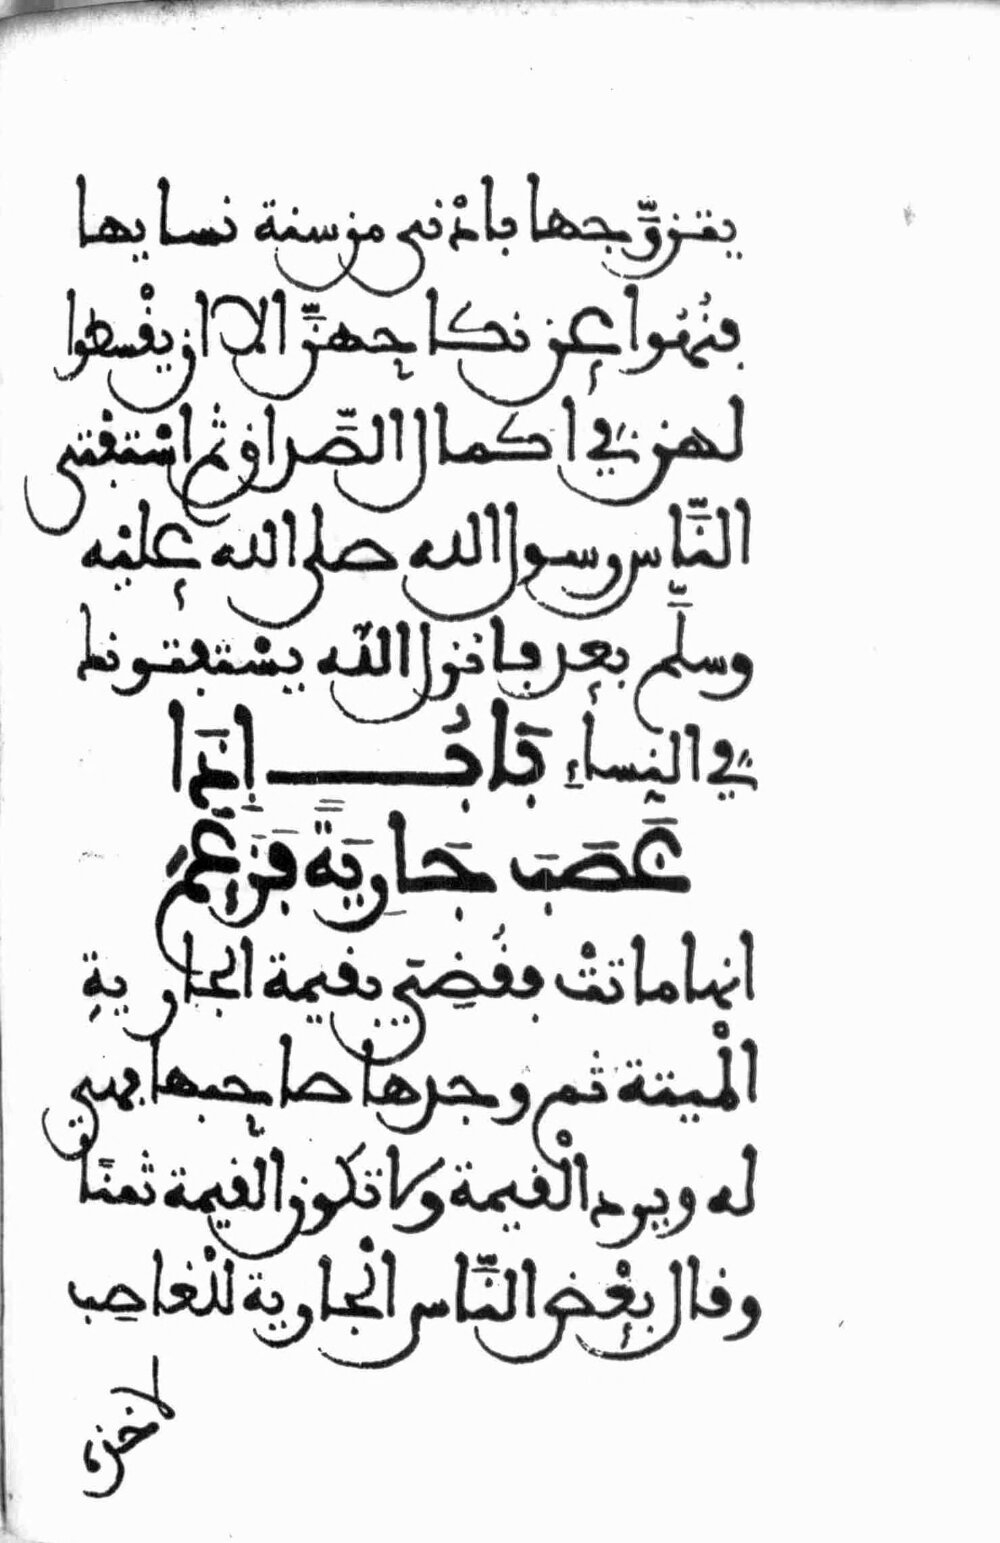 يتزوّجها بادْنى من سنة نسايها
فنُهُوا عن نكاحهنّ الا ان يفْسطوا
لهن في اكمال الصّداق ثم اسْتفتى
النّاس رسول الله صلى الله عليْه
وسلّم بعد فانزل الله يسْتفتونك
في النساءِ بَابُ اِذَا
غَصَبَ جَارِيَةً فَزَعَمَ
انها ماتتْ فقُضِيَ بقيمة الجاريةِ
الْميتة ثم وجدها صاحبها فهي
له ويرد الْقيمة ولا تكون القيمة ثمنًا
وقال بعْض النّاس الْجارية للْغاصِب
لاخذه